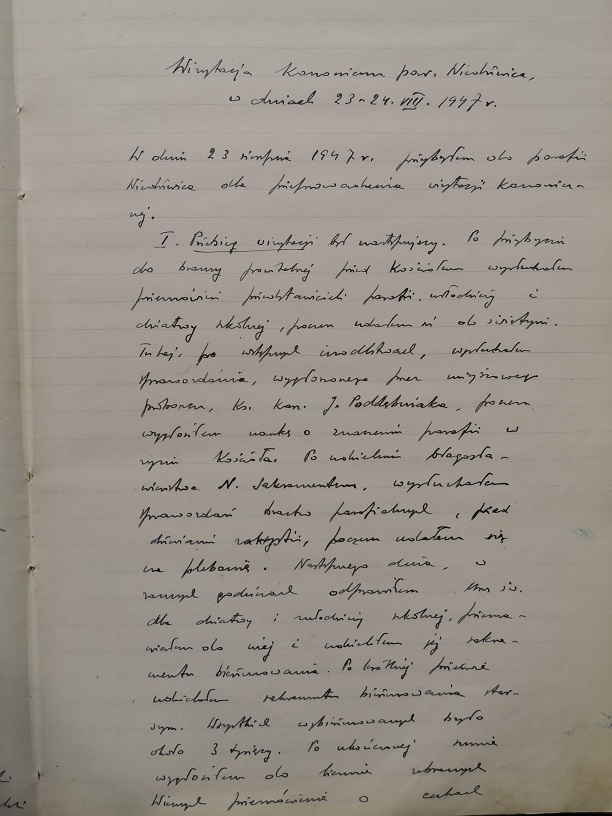 Wizytacja kanoniczna par. Niedrzwica,
w dniach 23-24.VIII.1947 r.
W dniu 23 sierpnia 1947 r. przybyłem do parafii
Niedrzwica dla przeprowadzenia wizytacji kanonicz-
nej.
I. Przebieg wizytacji był następujący. Po przybyciu
do bramy powitalnej przed Kościołem wysłuchałem
przemówień przedstawicieli parafii, młodzieży i
dziatwy szkolnej, poczem udałem się do świątyni.
Tutaj, po wstępnych modlitwach, wysłuchałem
sprawozdania, wygłoszonego przez miejscowego
proboszcza, Ks. Kan. J. Poddębniaka, poczem
wygłosiłem naukę o znaczeniu parafii w
życiu Kościoła. Po udzieleniu błogosła-
wieństwa N. Sakramentem, wysłuchałem
sprawozdań bractw parafialnych, przed
drzwiami zakrystii, poczem udałem się
na plebanię. Następnego dnia, w
rannych godzinach odprawiłem Mszę św.
dla dziatwy i młodzieży szkolnej, przema-
wiałem do niej i udzieliłem jej sakra-
mentu bierzmowania. Po krótkiej przerwie
udzielałem sakramentu bierzmowania star-
szym. Wszystkich wybierzmowanych było
około 3 tysięcy. Po ukończonej sumie
wygłosiłem do licznie zebranych
Wiernych przemówienie o cechach